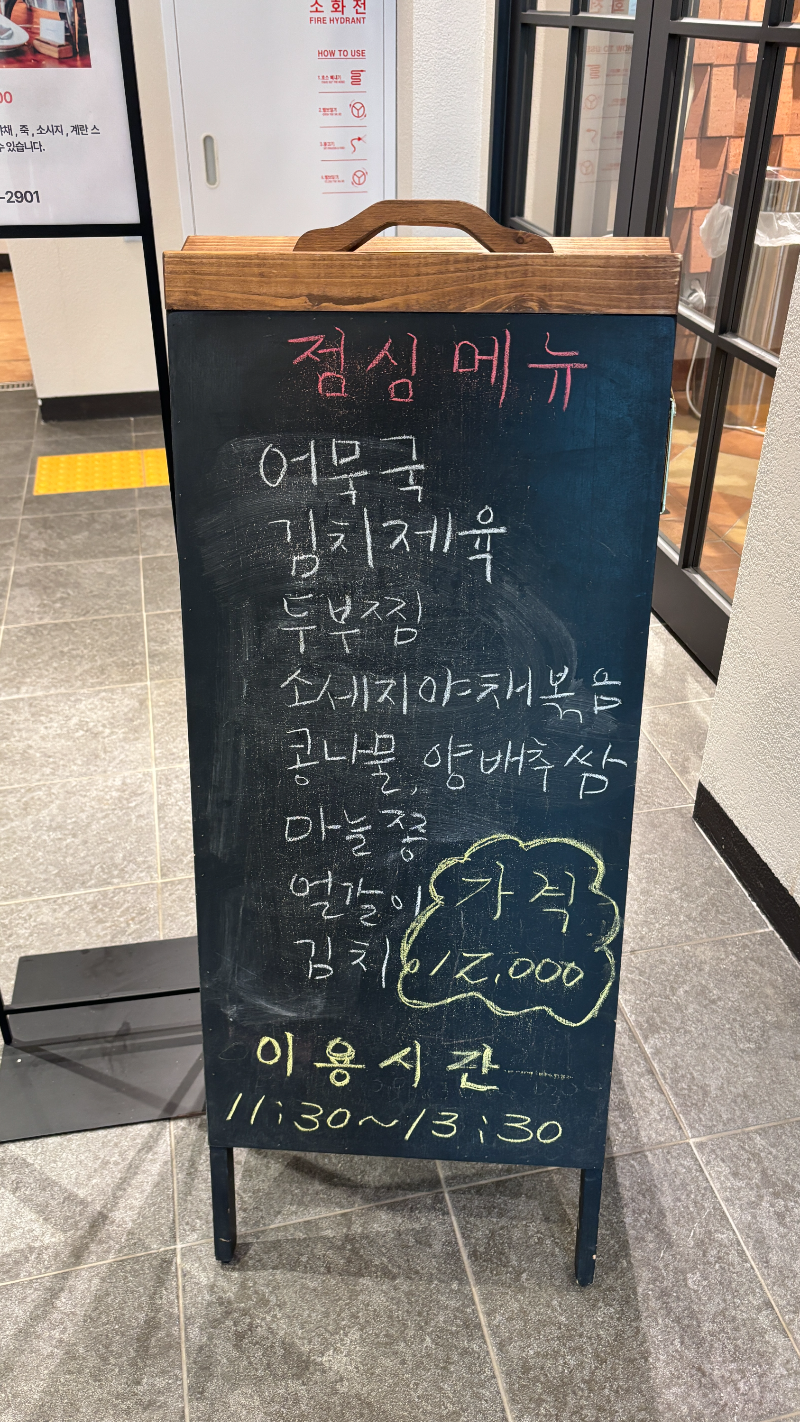 소화전
FIRE HYDRANT
HOW TO USE
00
야채, 죽, 소시지, 계란 스
수 있습니다.
-2901
점심 메뉴
어묵국
김치제육
두부찜
소세지야채볶음
콩나물, 양배추쌈
마늘쫑
얼갈이
김치
가격
12,000
이용시간
11:30~13:30